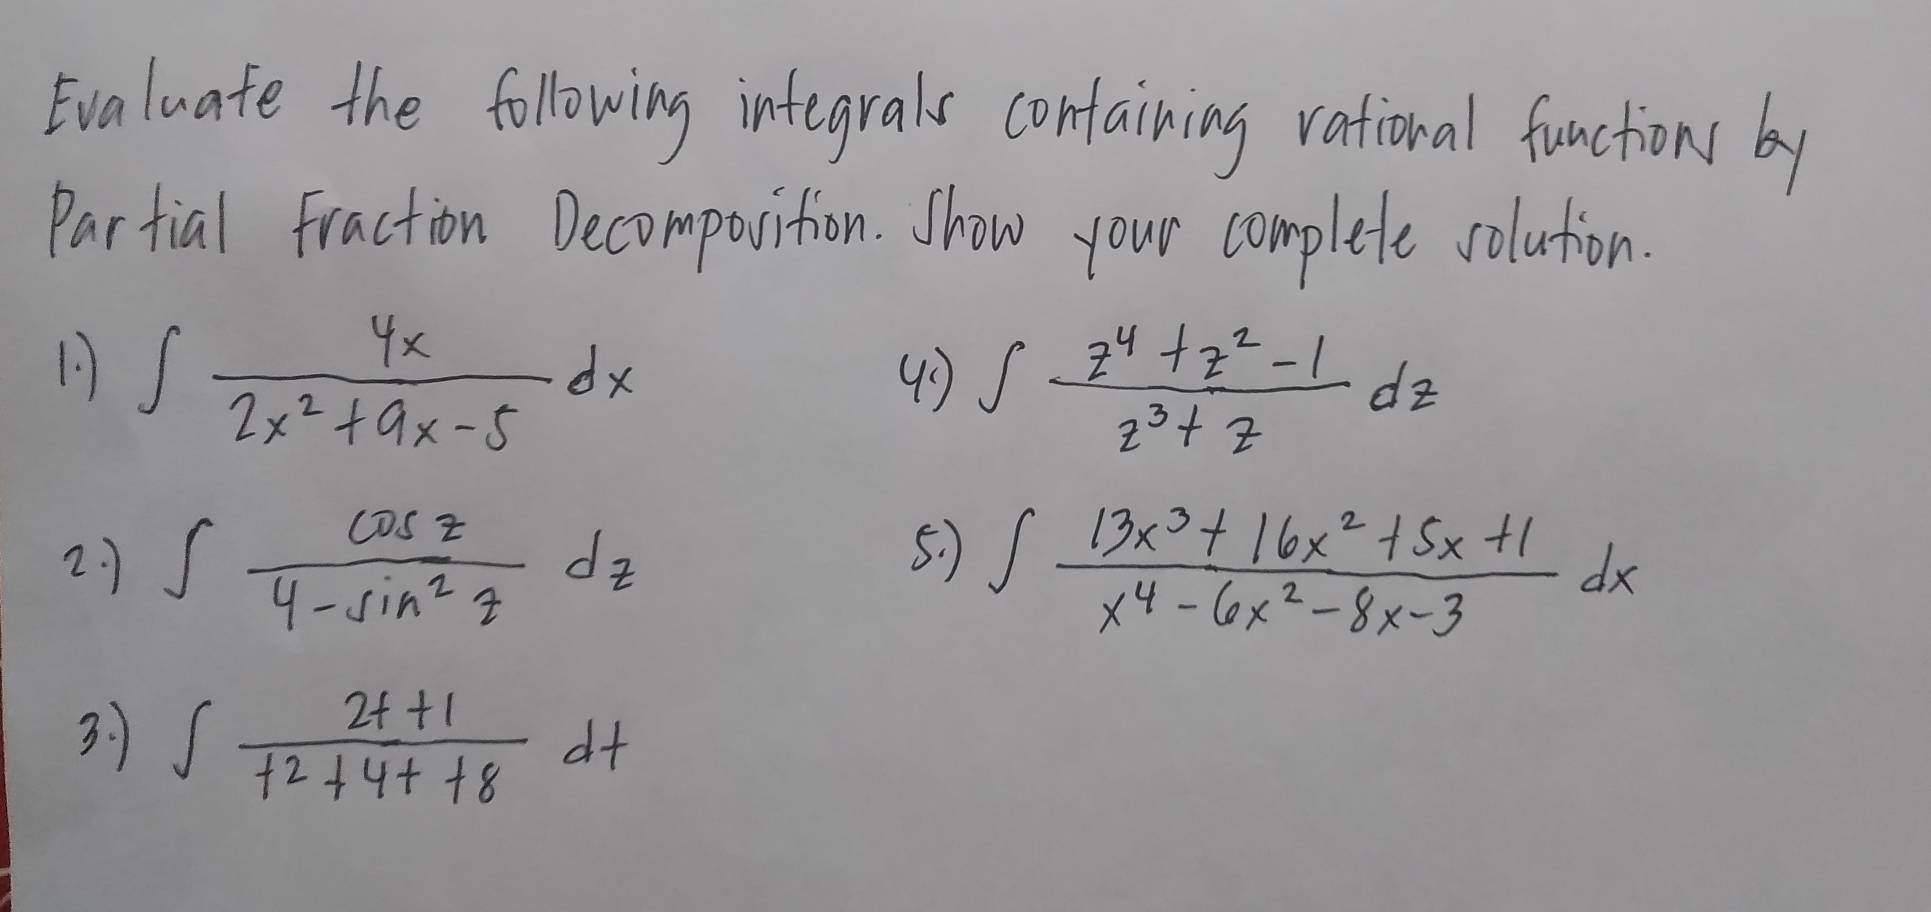 Evaluate the following integrals containing rational functions by
Partial Fraction Decomposition. Show your complete solution.
1.) ∫ 4x / (2x² + 9x - 5) dx
2.) ∫ cos z / (4 - sin² z) dz
3.) ∫ (2t + 1) / (t² + 4t + 8) dt
4.) ∫ (z⁴ + z² - 1) / (z³ + z) dz
5.) ∫ (13x³ + 16x² + 5x + 1) / (x⁴ - 6x² - 8x - 3) dx